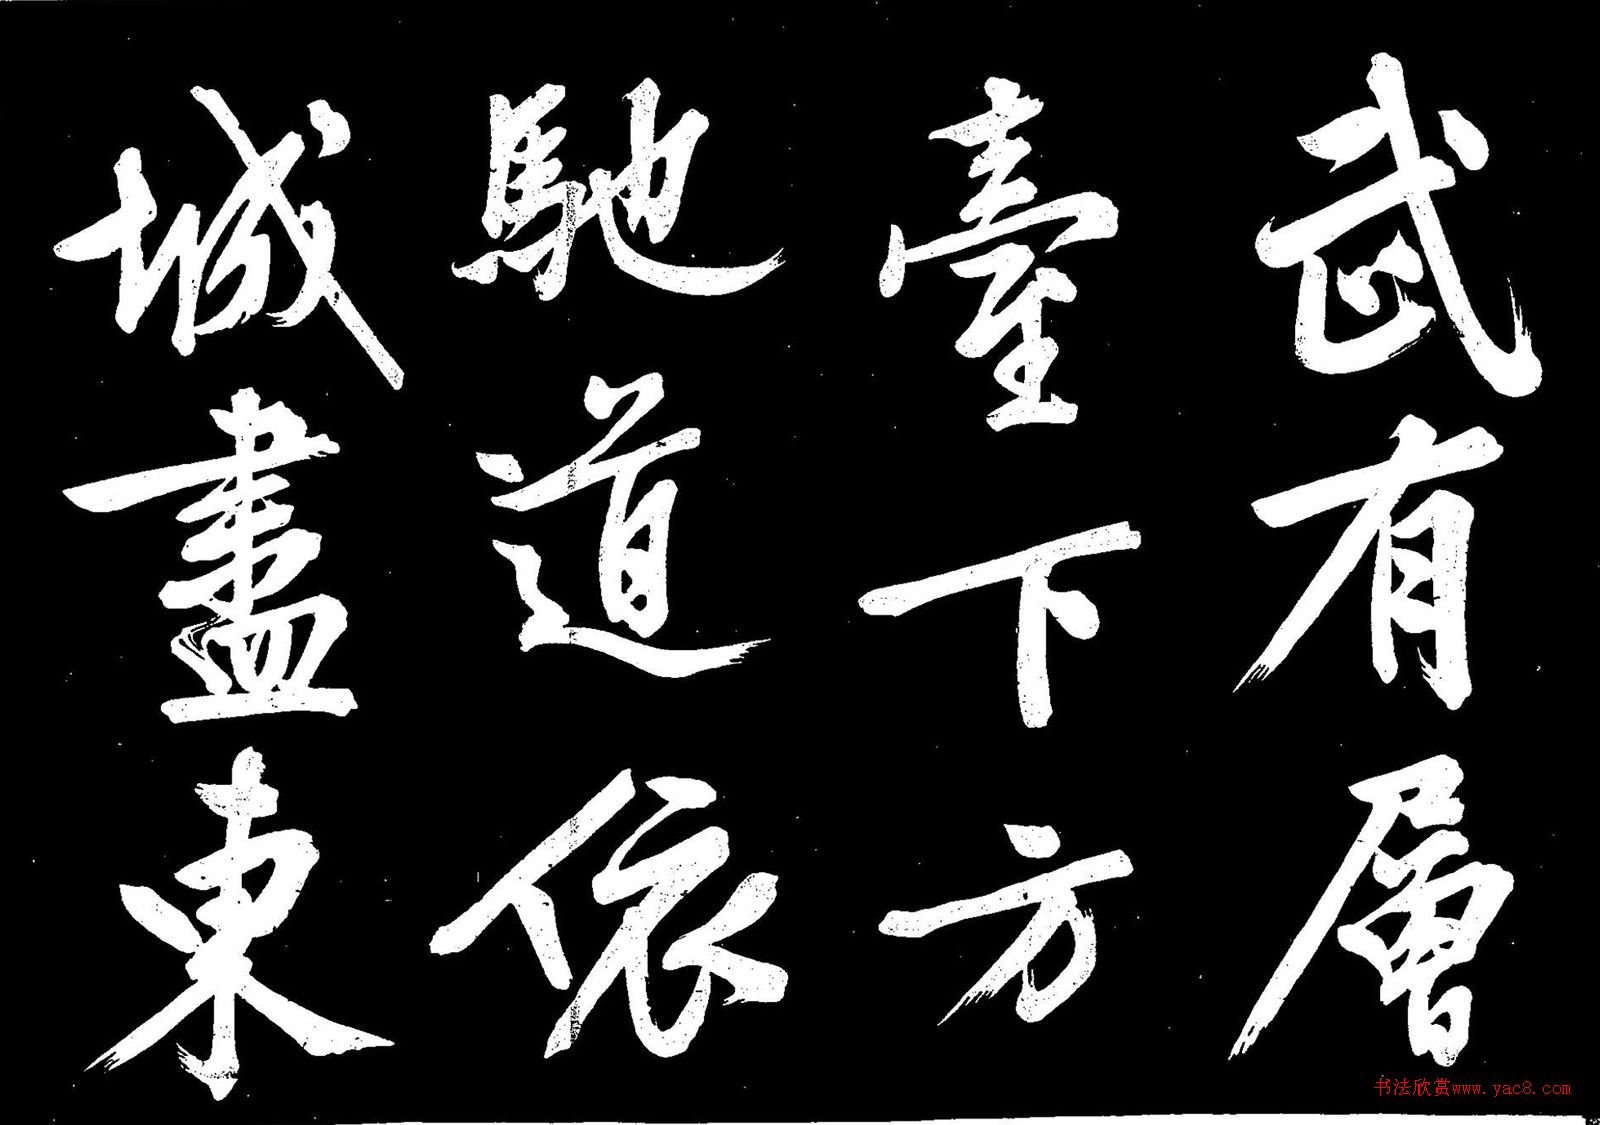 武有層
臺下方
馳道依
城盡東
书法欣赏www.yac8.com